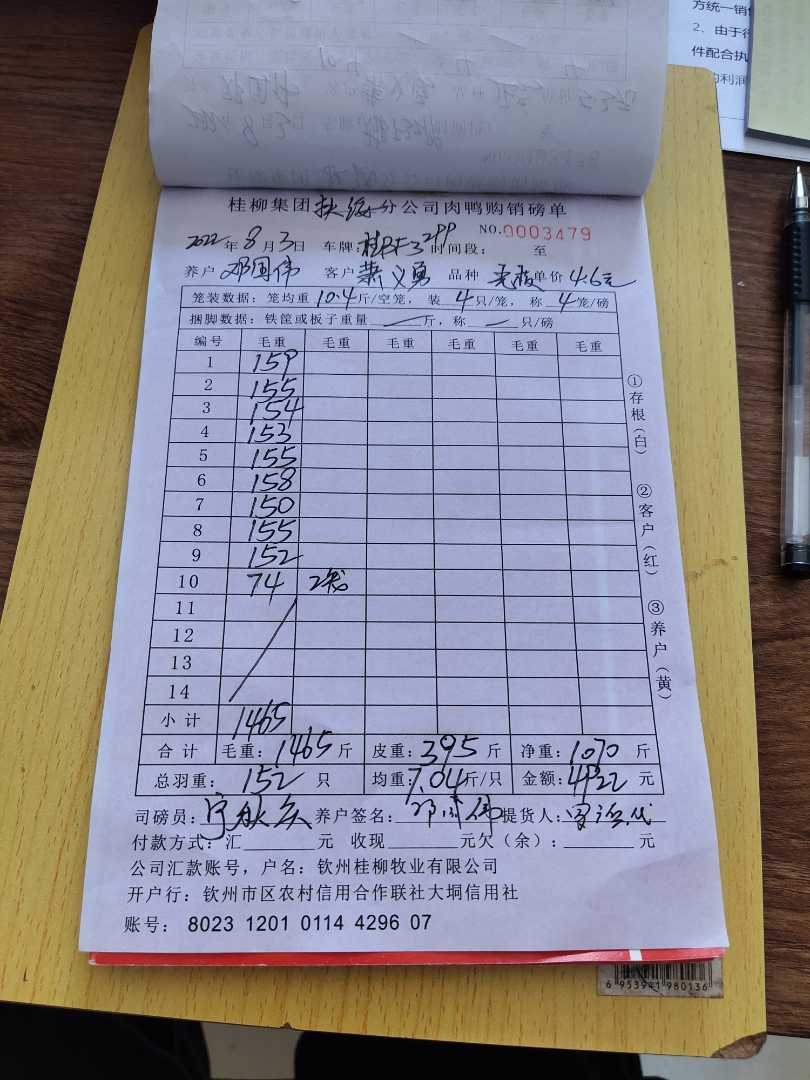 方统一销
2、由于
件配合执
的利润
桂柳集团扶绥分公司肉鸭购销磅单
NO.0003479
2022年8月3日 车牌:桂 299 时间段: 至
养户 邓国伟 客户 萧义勇 品种 单价 4.6元
笼装数据:笼均重10.4斤/空笼,装4只/笼,称4笼/磅
捆脚数据:铁筐或板子重量 斤,称 只/磅
编号 毛重 毛重 毛重 毛重 毛重 毛重
1 159
2 155
3 154
4 153
5 155
6 158
7 150
8 155
9 152
10 74 2笼
11
12
13
14
小计 1465
合计 毛重:1465斤 皮重:395斤 净重:1070斤
总羽重:152只 均重:7.04斤/只 金额:4922元
司磅员: 养户签名:邓国伟 提货人:
付款方式:汇 元 收现 元欠(余): 元
公司汇款账号,户名:钦州桂柳牧业有限公司
开户行:钦州市区农村信用合作联社大垌信用社
账号: 8023 1201 0114 4296 07
①存根(白)
②客户(红)
③养户(黄)
6 953941 980136